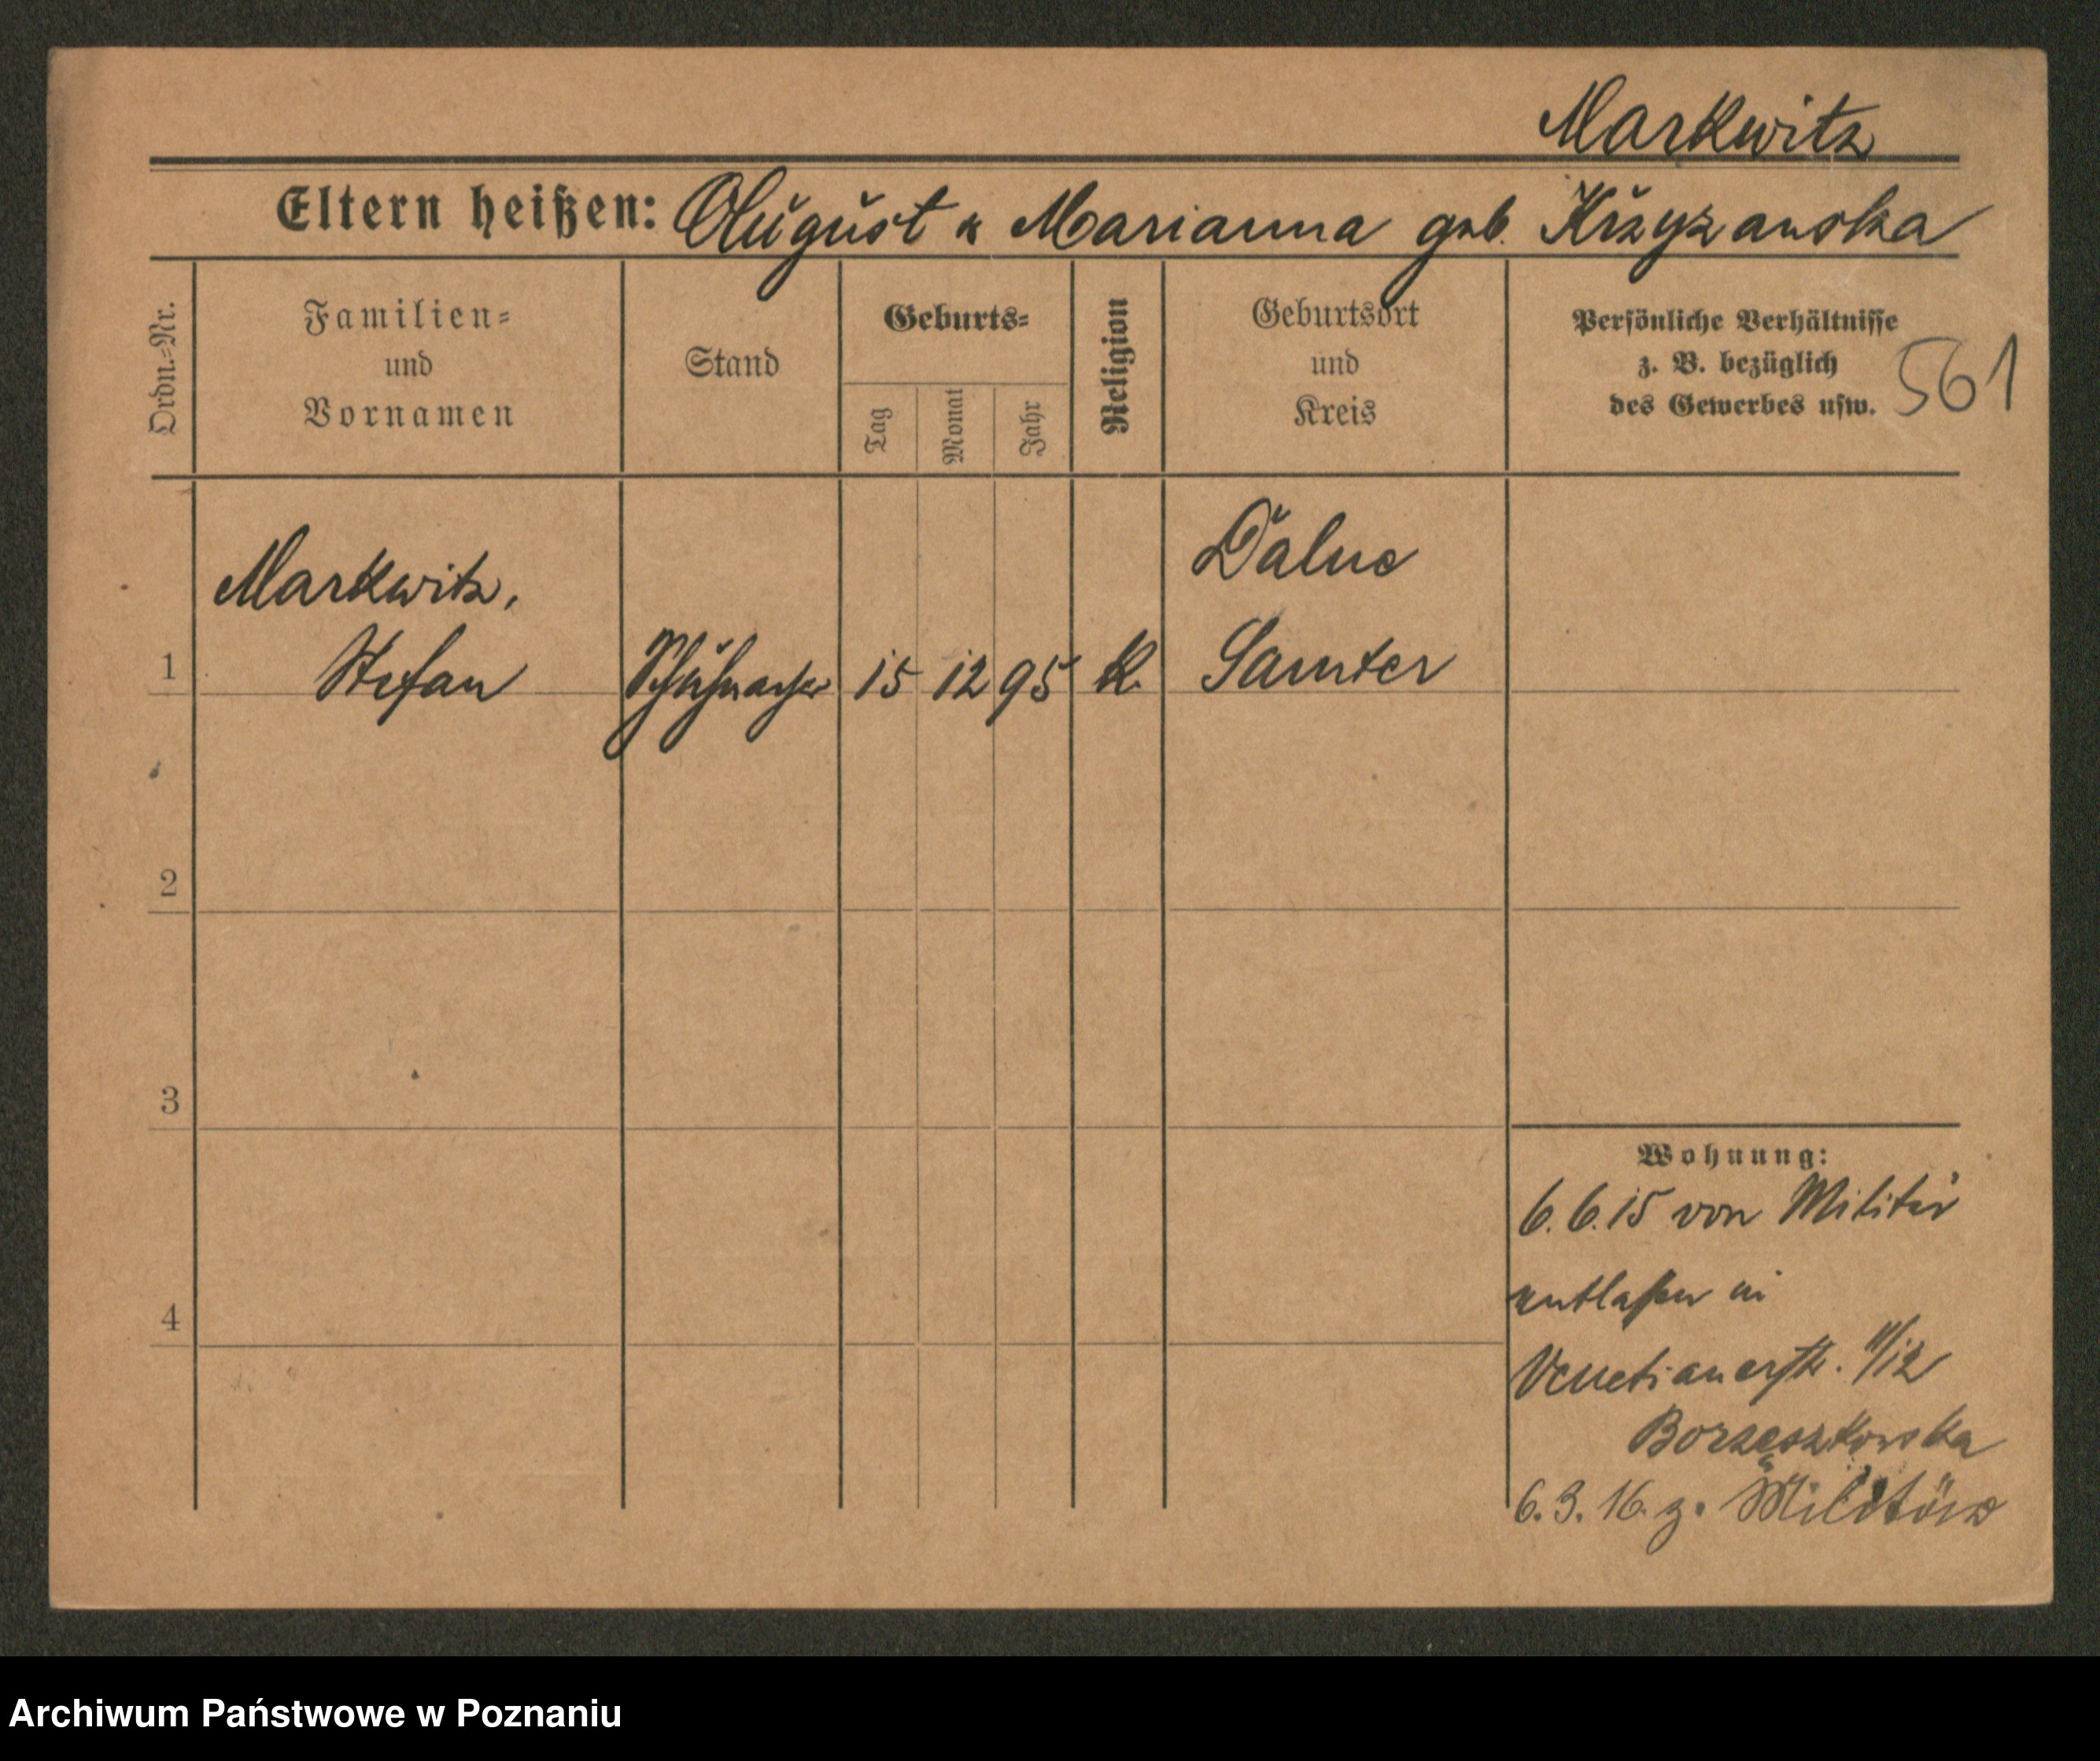 Markwitz
Eltern heißen: August u Marianna geb. Krzyzanska
Ordn.=Nr.
Familien=
und
Vornamen
Stand
Geburts=
Tag
Monat
Jahr
Religion
Geburtsort
und
Kreis
Persönliche Verhältnisse
z. B. bezüglich
des Gewerbes usw.
561
Markwitz,
1 Stefan Schuhmacher 15 12 95 K.
Samter
2
3
4
Wohnung:
6.6.15 von Militär
entlassen in
Venetianerstr. 11/12
Borzeszkowska
6.3.16. z. Militär
Archiwum Państwowe w Poznaniu